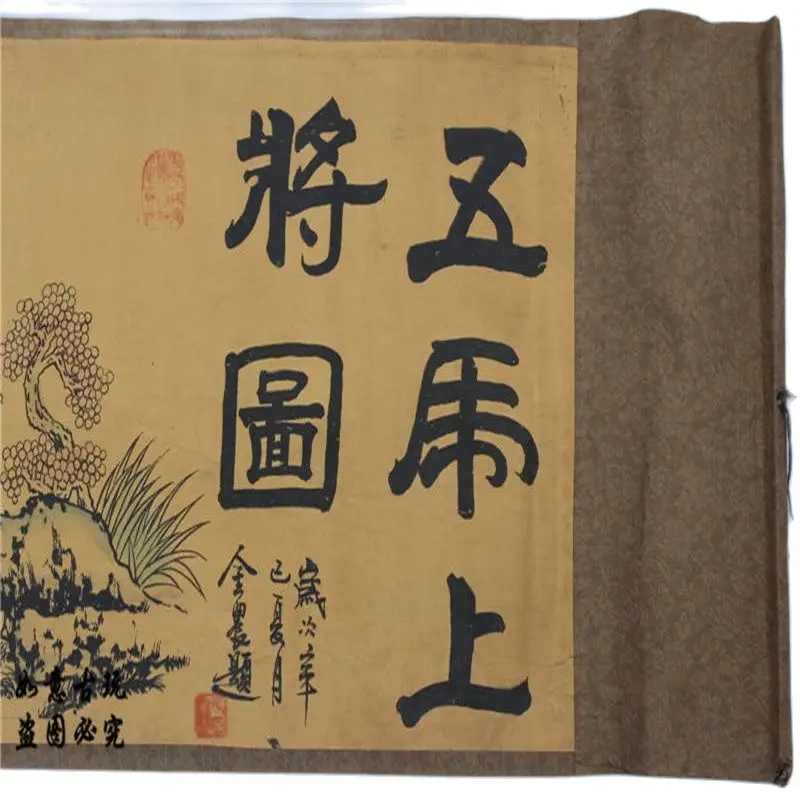 五虎上
將圖
歲次辛
巳夏月
金農題
如意古玩
盗图必究